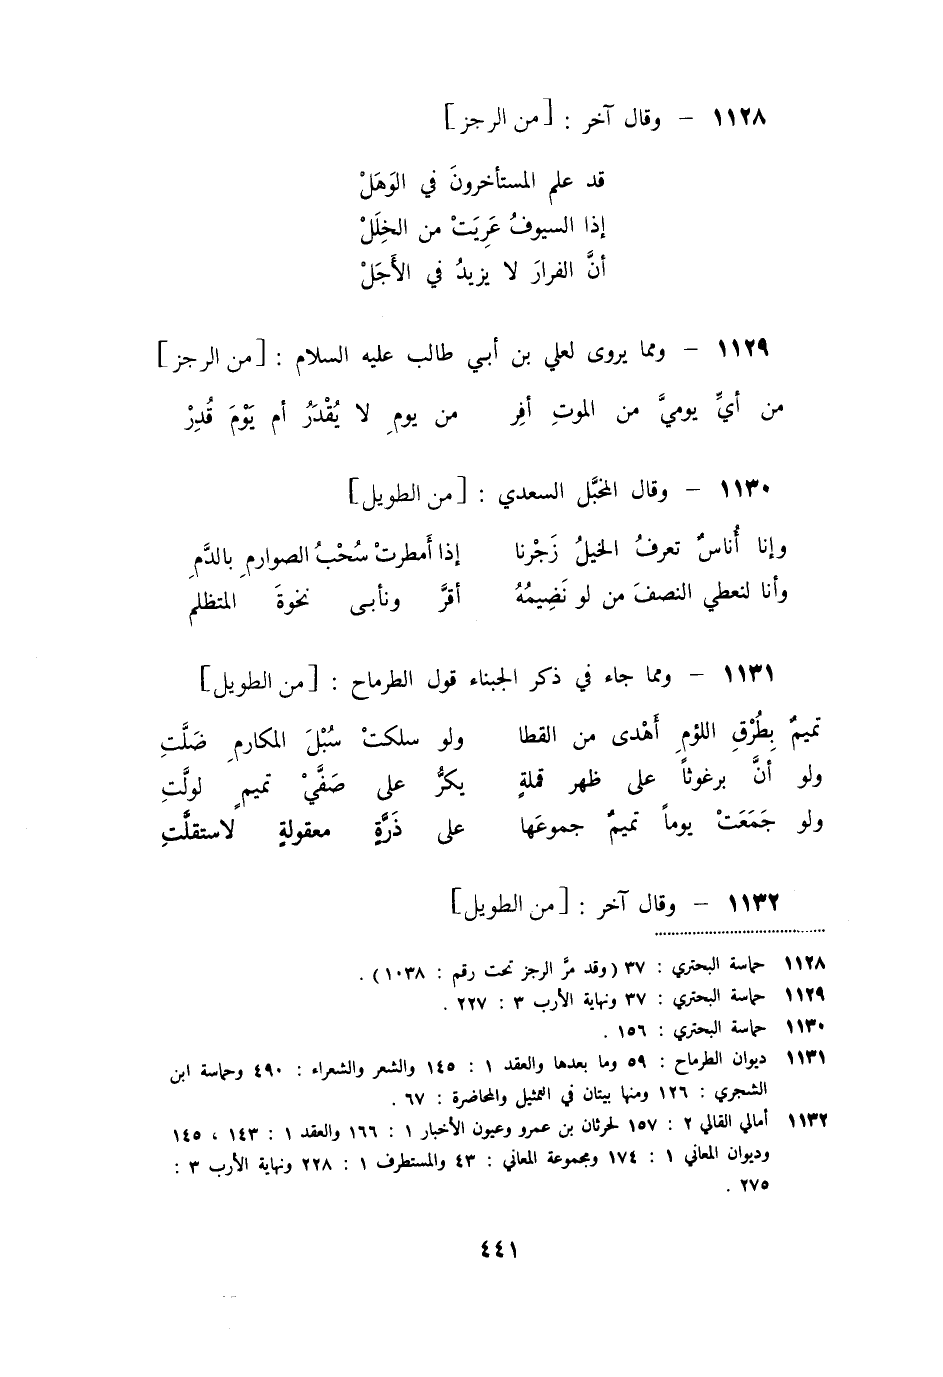 ١١٢٨ – وقال آخر : [من الرجز]
قد علم المستأخرونَ في الوَهَلْ
إذا السيوفُ عَرِيَتْ من الخِلَلْ
أنَّ الفرارَ لا يزيدُ في الأَجَلْ
١١٢٩ – ومما يروى لعلي بن أبي طالب عليه السلام : [من الرجز]
من أيِّ يوميَّ من الموتِ أفِر من يومِ لا يُقْدَرُ أم يَوْمَ قُدِرْ
١١٣٠ – وقال المخبَّل السعدي : [من الطويل]
وإنا أُناسٌ تعرفُ الخيلُ زَجْرنا إذا أَمطرتْ سُحْبُ الصوارمِ بالدَّمِ
وأنا لنعطي النصفَ من لو نَضِيمُهُ أقرَّ ونأبى نخوةَ المتظلم
١١٣١ – ومما جاء في ذكر الجبناء قول الطرماح : [من الطويل]
تميمٌ بِطُرْقِ اللؤمِ أَهْدى من القطا ولو سلكتْ سُبْلَ المكارمِ ضَلَّتِ
ولو أنَّ برغوثاً على ظهر قملةٍ يكرُّ على صَفَّيْ تميمٍ لولَّتِ
ولو جَمَعَتْ يوماً تميمٌ جموعَها على ذَرَّةٍ معقولةٍ لاستقلَّتِ
١١٣٢ – وقال آخر : [من الطويل]
١١٢٨ حماسة البحتري : ٣٧ (وقد مرَّ الرجز تحت رقم : ١٠٣٨) .
١١٢٩ حماسة البحتري : ٣٧ ونهاية الأرب ٣ : ٢٢٧ .
١١٣٠ حماسة البحتري : ١٥٦ .
١١٣١ ديوان الطرماح : ٥٩ وما بعدها والعقد ١ : ١٤٥ والشعر والشعراء : ٤٩٠ وحماسة ابن
الشجري : ١٢٦ ومنها بيتان في التمثيل والمحاضرة : ٦٧ .
١١٣٢ أمالي القالي ٢ : ١٥٧ لحرثان بن عمرو وعيون الأخبار ١ : ١٦٦ والعقد ١ : ١٤٣ ، ١٤٥
وديوان المعاني ١ : ١٧٤ ومجموعة المعاني : ٤٣ والمستطرف ١ : ٢٢٨ ونهاية الأرب ٣ :
٢٧٥ .
٤٤١